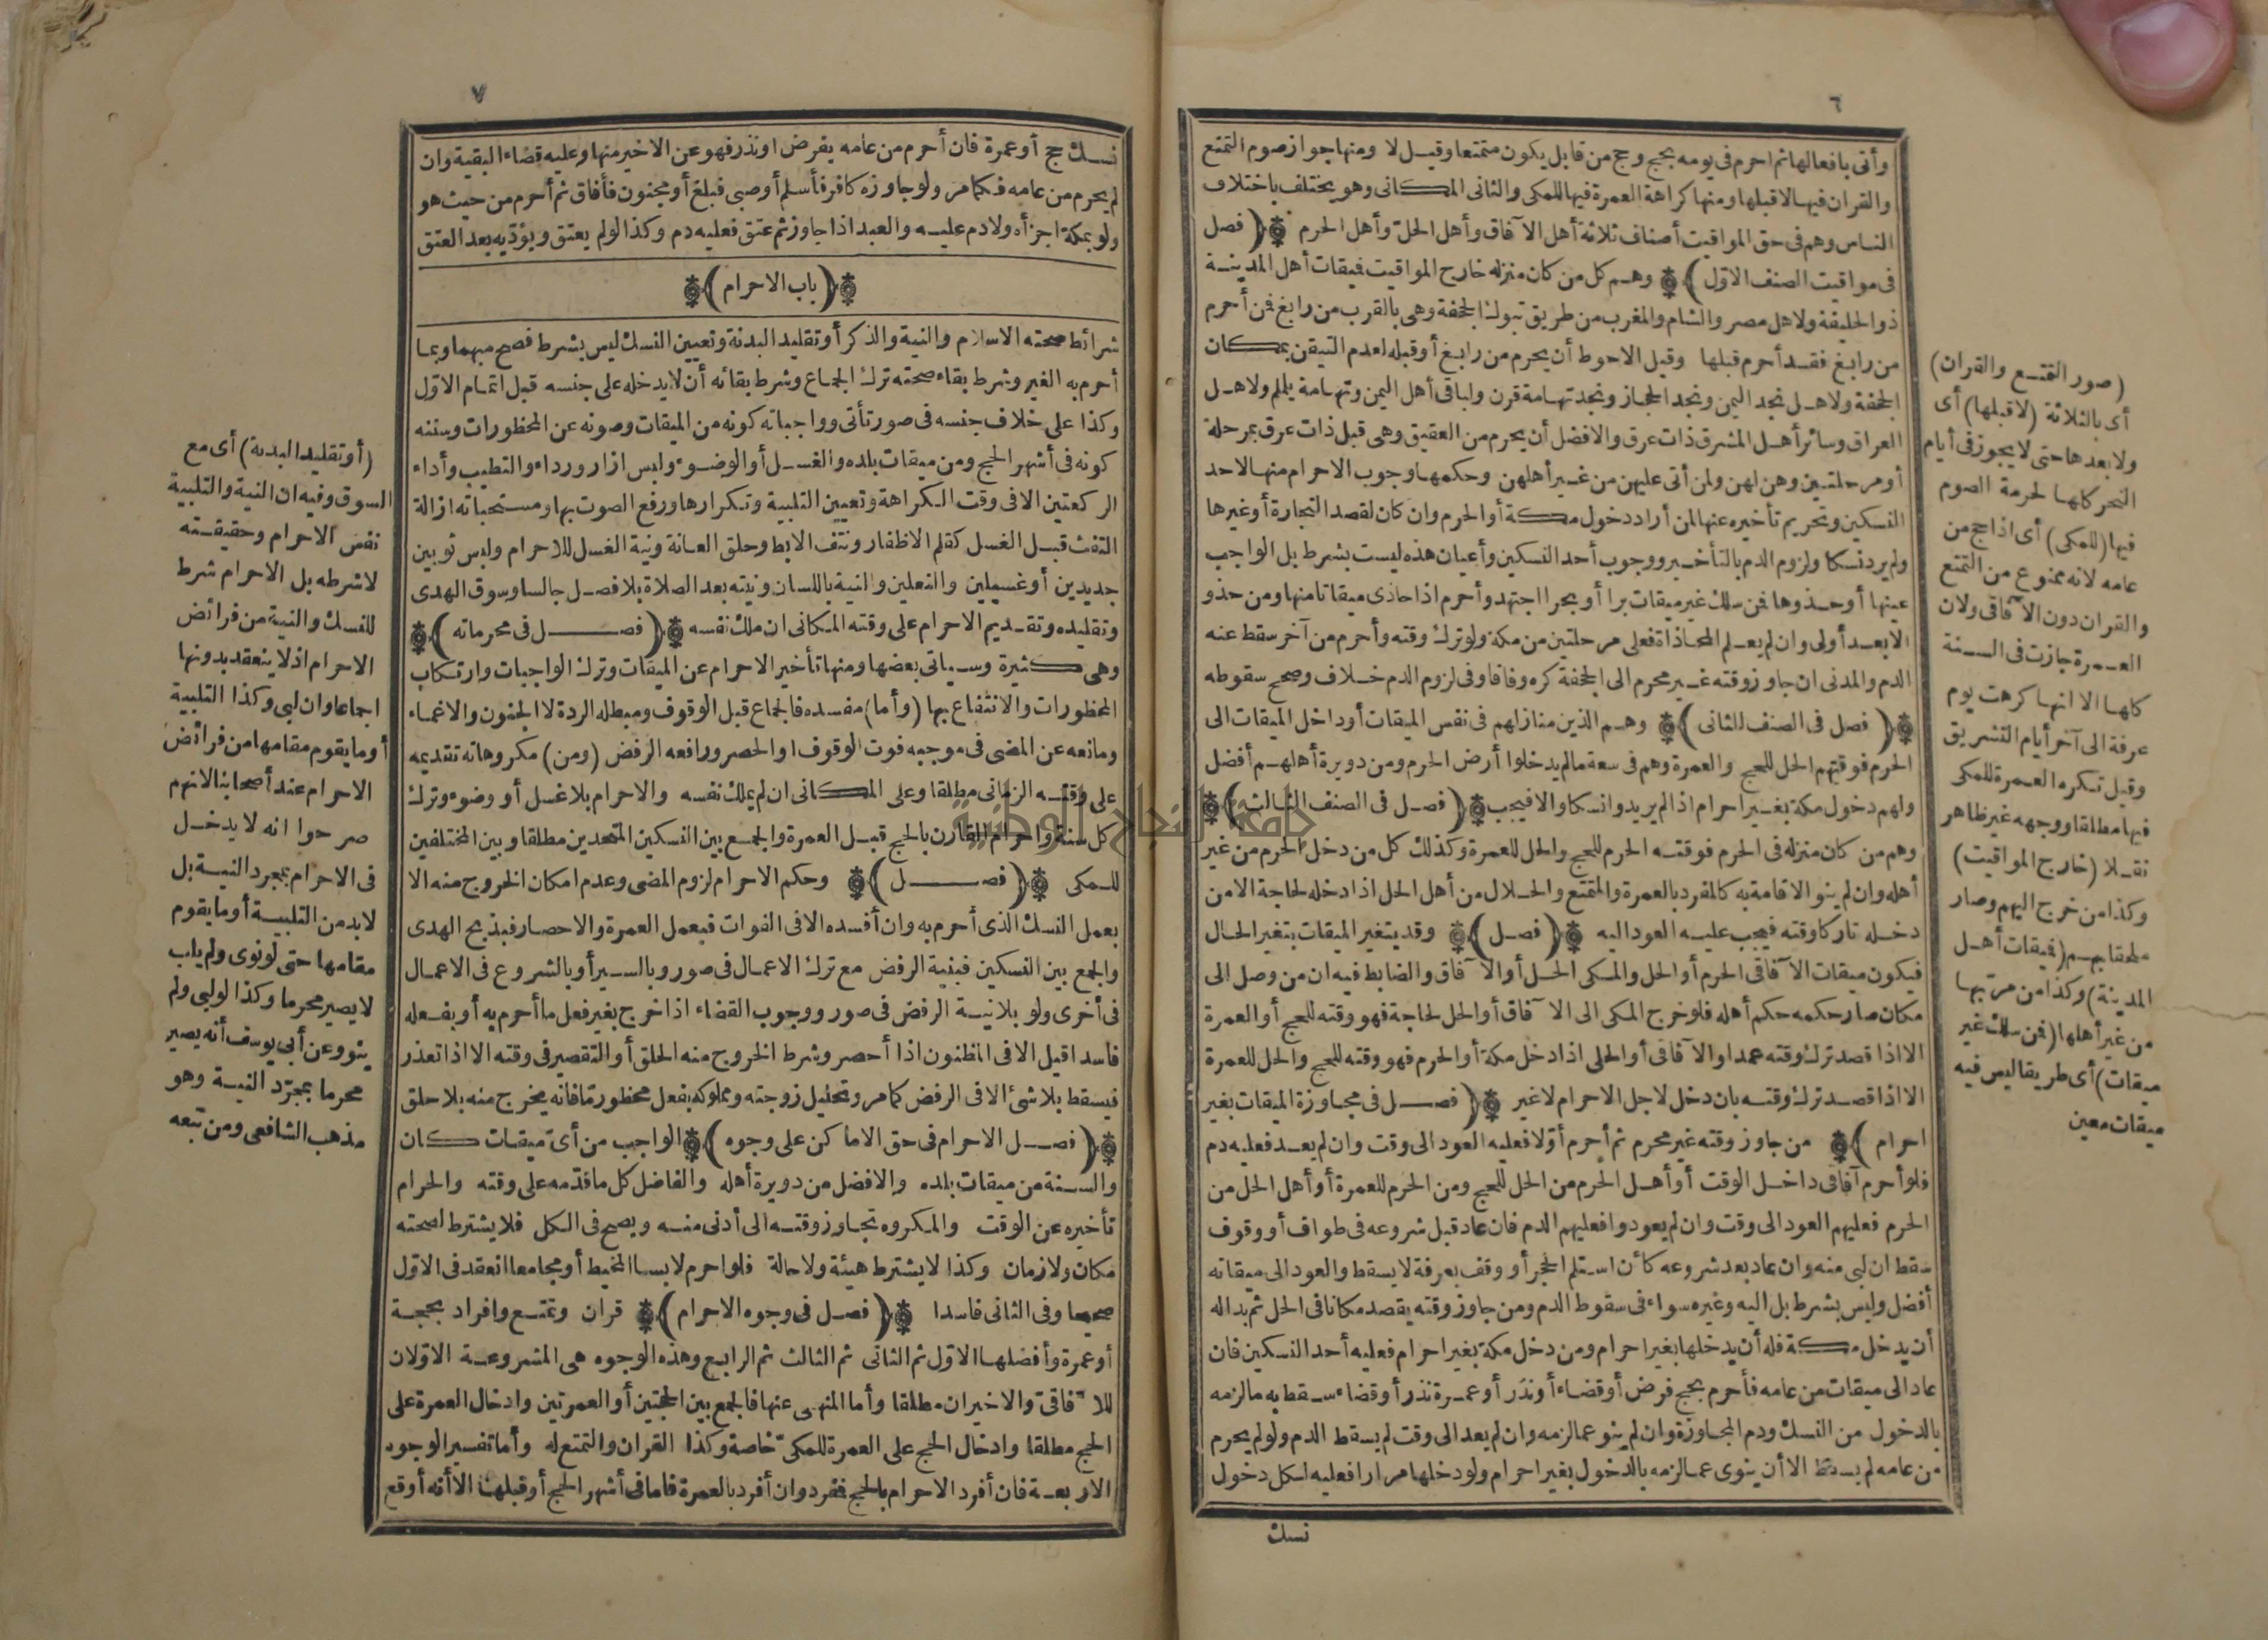 ٦
وأتى بافعالها ثم احرم فى يومه بحج وحج من قابل يكون متمتعا وقيل لا ومنها جواز صوم التمتع
والقران فيها لا قبلها ومنها كراهة العمرة فيها للمكى والثانى المكانى وهو يختلف باختلاف
الناس وهم فى حق المواقيت أصناف ثلاثة أهل الآفاق وأهل الحل وأهل الحرم (فصل
فى مواقيت الصنف الاول) وهم كل من كان منزله خارج المواقيت فيقات أهل المدينة
ذوا الحليفة ولاهل مصر والشام والمغرب من طريق تبوك الجحفة وهى بالقرب من رابغ فمن أحرم
من رابغ فقد أحرم قبلها وقيل الاحوط أن يحرم من رابغ أو قبله لعدم التيقن بمكان
الجحفة ولاهل نجد اليمن ونجد الحجاز ونجد تهامة قرن ولباقى أهل اليمن وتهامة يلملم ولاهل
العراق وسائر أهل المشرق ذات عرق والافضل أن يحرم من العقيق وهى قبل ذات عرق بمرحلة
أو مرحلتين وهن لهن ولمن أتى عليهن من غير أهلهن وحكمها وجوب الاحرام منها لاحد
النسكين وتحريم تأخيره عنها لمن أراد دخول مكة أو الحرم وان كان لقصد التجارة أو غيرها
ولم يرد نسكا ولزوم الدم بالتأخير ووجوب أحد النسكين وأعيان هذه ليست بشرط بل الواجب
عينها أو حذوها فمن سلك غير ميقات برا أو بحرا اجتهد وأحرم اذا حاذى ميقاتا منها ومن حذو
الابعد أولى وان لم يعلم المحاذاة فعلى مرحلتين من مكة ولو ترك وقته وأحرم من آخر سقط عنه
الدم والمدنى ان جاوز وقته غير محرم الى الجحفة كره وفاقا وفى لزوم الدم خلاف وصحح سقوطه
(فصل فى الصنف الثانى) وهم الذين منازلهم فى نفس الميقات أو داخل الميقات الى
الحرم فوقتهم الحل للحج والعمرة وهم فى سعة مالم يدخلوا أرض الحرم ومن دويرة أهلهم أفضل
ولهم دخول مكة بغير احرام اذا لم يريدوا نسكا والا فيجب (فصل فى الصنف الثالث)
وهم من كان منزله فى الحرم فوقته الحرم للحج والحل للعمرة وكذلك كل من دخل الحرم من غير
أهله وان لم ينو الاقامة به كالمفرد بالعمرة والمتمتع والحلال من أهل الحل اذا دخله لحاجة الا من
دخله تاركا وقته فيجب عليه العود اليه (فصل) وقد يتغير الميقات بتغير الحال
فيكون ميقات الآفاقى الحرم أو الحل والمكى الحل أو الآفاق والضابط فيه ان من وصل الى
مكان صار حكمه حكم أهله فلو خرج المكى الى الآفاق أو الحل لحاجة فهو وقته للحج أو العمرة
الا اذا قصد ترك وقته عمدا والآفاقى أو الحلى اذا دخل مكة أو الحرم فهو وقته للحج والحل للعمرة
الا اذا قصد ترك وقته بان دخل لاجل الاحرام لا غير (فصل فى مجاوزة الميقات بغير
احرام) من جاوز وقته غير محرم ثم أحرم أولا فعليه العود الى وقت وان لم يعد فعليه دم
فلو أحرم آفاقى داخل الوقت أو أهل الحرم من الحل للحج ومن الحرم للعمرة أو أهل الحل من
الحرم فعليهم العود الى وقت وان لم يعودوا فعليهم الدم فان عاد قبل شروعه فى طواف أو وقوف
سقط ان لبى منه وان عاد بعد شروعه كأن استلم الحجر أو وقف بعرفة لا يسقط والعود الى ميقاته
أفضل وليس بشرط بل اليه وغيره سواء فى سقوط الدم ومن جاوز وقته يقصد مكانا فى الحل ثم بدا له
أن يدخل مكة فله أن يدخلها بغير احرام ومن دخل مكة بغير احرام فعليه أحد النسكين فان
عاد الى ميقات من عامه فأحرم بحج فرض أو قضاء أو نذر أو عمرة نذر أو قضاء سقط به ما لزمه
بالدخول من النسك ودم المجاوزة وان لم ينو عما لزمه وان لم يعد الى وقت لم يسقط الدم ولو لم يحرم
من عامه لم يسقط الا أن ينوى عما لزمه بالدخول بغير احرام ولو دخلها مرارا فعليه لكل دخول
نسك
(صور التمتع والقران)
أى بالثلاثة (لا قبلها) أى
ولا بعدها حتى لا يجوز فى أيام
النحر كلها لحرمة الصوم
فيها (للمكى) أى اذا حج من
عامه لانه ممنوع من التمتع
والقران دون الآفاقى ولان
العمرة جازت فى السنة
كلها الا انها كرهت يوم
عرفة الى آخر أيام التشريق
وقيل تكره العمرة للمكى
فيها مطلقا ووجهه غير ظاهر
نقلا (خارج المواقيت)
وكذا من خرج اليهم وصار
ملحقا بهم (فيقات أهل
المدينة) وكذا من مر بها
من غير أهلها (فمن سلك غير
ميقات) أى طريقا ليس فيه
ميقات معين
٧
نسك حج أو عمرة فان أحرم من عامه بفرض او نذر فهو عن الاخير منها وعليه قضاء البقية وان
لم يحرم من عامه فكما مر ولو جاوزه كافر فأسلم أو صبى فبلغ أو مجنون فأفاق ثم أحرم من حيث هو
ولو بمكة اجزأه ولا دم عليه والعبد اذا جاوز ثم عتق فعليه دم وكذا لو لم يعتق ويؤديه بعد العتق
(باب الاحرام)
شرائط صحته الاسلام والنية والذكر أو تقليد البدنة وتعيين النسك ليس بشرط فصح مبهما وبما
أحرم به الغير وشرط بقاء صحته ترك الجماع وشرط بقائه أن لا يدخله على جنسه قبل اتمام الاول
وكذا على خلاف جنسه فى صور تأتى وواجباته كونه من الميقات وصونه عن المحظورات وسننه
كونه فى أشهر الحج ومن ميقات بلده والغسل أو الوضوء ولبس ازار ورداء والتطيب وأداء
الركعتين الا فى وقت الكراهة وتعيين التلبية وتكرارها ورفع الصوت بها ومستحباته ازالة
التفث قبل الغسل كقلم الاظفار ونتف الابط وحلق العانة ونية الغسل للاحرام ولبس ثوبين
جديدين أو غسيلين والنعلين والنية باللسان ونيته بعد الصلاة بلا فصل جالسا وسوق الهدى
وتقليده وتقديم الاحرام على وقته المكانى ان ملك نفسه (فصل فى محرماته)
وهى كثيرة وسيأتى بعضها ومنها تأخير الاحرام عن الميقات وترك الواجبات وارتكاب
المحظورات والانتفاع بها (وأما) مفسده فالجماع قبل الوقوف ومبطله الردة لا الجنون والاغماء
ومانعه عن المضى فى موجبه فوت الوقوف او الحصر ورافعه الرفض (ومن) مكروهاته تقديمه
على وقته الزمانى مطلقا وعلى المكانى ان لم يملك نفسه والاحرام بلا غسل أو وضوء وترك
كل سنة واحرام القارن بالحج قبل العمرة والجمع بين النسكين المتحدين مطلقا وبين المختلفين
للمكى (فصل) وحكم الاحرام لزوم المضى وعدم امكان الخروج منه الا
بعمل النسك الذى أحرم به وان أفسده الا فى الفوات فبعمل العمرة والاحصار فبذبح الهدى
والجمع بين النسكين فبنية الرفض مع ترك الاعمال فى صور وبالسير أو بالشروع فى الاعمال
فى أخرى ولو بلا نية الرفض فى صور ووجوب القضاء اذا خرج بغير فعل ما أحرم به أو بفعله
فاسدا قيل الا فى المظنون اذا أحصر وشرط الخروج منه الحلق أو التقصير فى وقته الا اذا تعذر
فيسقط بلا شئ الا فى الرفض كما مر وتحليل زوجته ومملوكه بفعل محظور مّا فانه يخرج منه بلا حلق
(فصل الاحرام فى حق الاماكن على وجوه) الواجب من أىّ ميقات كان
والسنة من ميقات بلده والافضل من دويرة أهله والفاضل كل ما قدّمه على وقته والحرام
تأخيره عن الوقت والمكروه تجاوز وقته الى أدنى منه ويصح فى الكل فلا يشترط لصحته
مكان ولا زمان وكذا لا يشترط هيئة ولا حالة فلو احرم لابسا المخيط أو مجامعا انعقد فى الاول
صحيحا وفى الثانى فاسدا (فصل فى وجوه الاحرام) قران وتمتع وافراد بحجة
أو عمرة وأفضلها الاول ثم الثانى ثم الثالث ثم الرابع وهذه الوجوه هى المشروعة الاولان
للآفاقىّ والاخيران مطلقا وأما المنهى عنها فالجمع بين الحجتين أو العمرتين وادخال العمرة على
الحج مطلقا وادخال الحج على العمرة للمكىّ خاصة وكذا القران والتمتع له وأما تفسير الوجوه
الاربعة فان أفرد الاحرام بالحج فمفرد وان أفرد بالعمرة فاما فى أشهر الحج أو قبلها الا أنه أوقع
(أو تقليد البدنة) أى مع
السوق وفيه ان النية والتلبية
نفس الاحرام وحقيقته
لا شرطه بل الاحرام شرط
للنسك والنية من فرائض
الاحرام اذ لا ينعقد بدونها
اجماعا وان لبى وكذا التلبية
أو ما يقوم مقامها من فرائض
الاحرام عند أصحابنا لانهم
صرحوا انه لا يدخل
فى الاحرام بمجرد النية بل
لا بد من التلبية أو ما يقوم
مقامها حتى لو نوى ولم يلب
لا يصير محرما وكذا لو لبى ولم
ينو وعن أبى يوسف أنه يصير
محرما بمجرّد النية وهو
مذهب الشافعى ومن تبعه
جامعة النجاح الوطنية